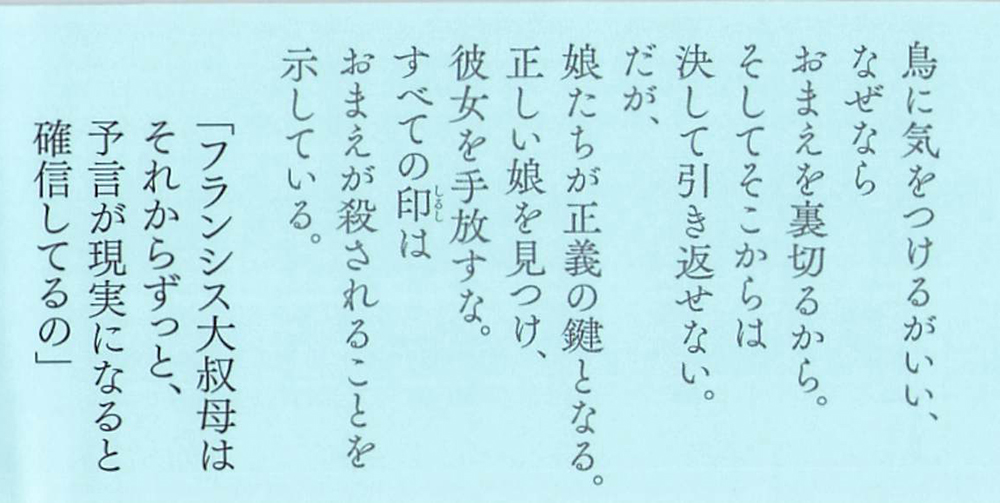 鳥に気をつけるがいい、
なぜなら
おまえを裏切るから。
そしてそこからは
決して引き返せない。
だが、
娘たちが正義の鍵となる。
正しい娘を見つけ、
彼女を手放すな。
すべての印しるしは
おまえが殺されることを
示している。
「フランシス大叔母は
それからずっと、
予言が現実になると
確信してるの」